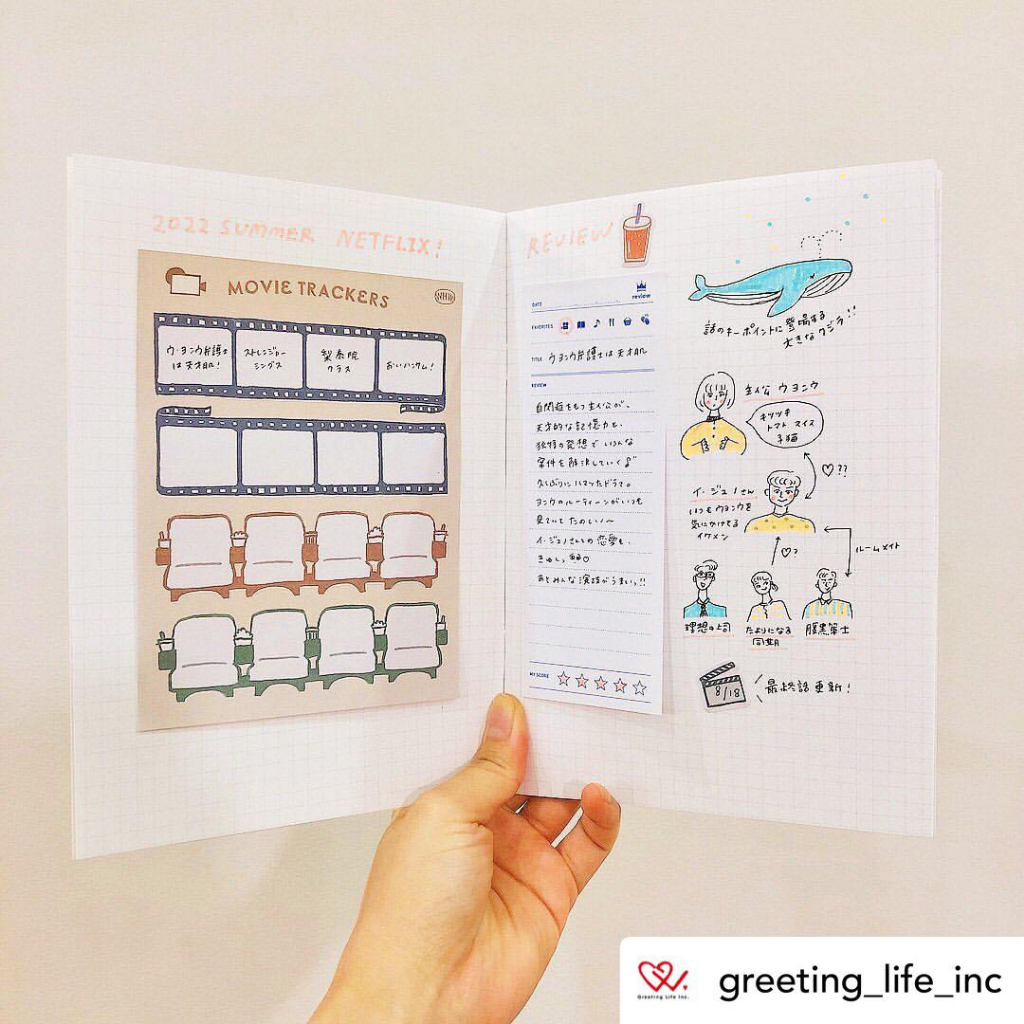 2022 SUMMER NETFLIX!
MOVIE TRACKERS
ウ・ヨンウ弁護士
は天才肌!
ストレンジャー
シングス
梨泰院
クラス
おいハンサム!
REVIEW
review
DATE
FAVORITES
TITLE ウヨンウ弁護士は天才肌
REVIEW
自閉症をもつ主人公が、
天才的な記憶力と、
独特の発想で いろんな
案件を解決していく
久しぶりに ハマったドラマ。
ヨンウのルーティーンがいつも
見ていて たのしい〜
イ・ジュノさんとの恋愛も、
きゅんっ
あと みんな 演技がうまいっ!!
MY SCORE
話のキーポイントに登場する
大きなクジラ!!
主人公 ウヨンウ
キツツキ
トマト スイス
子猫
♡??
イ・ジュノさん
いつもヨンウを
気にかけてる
イケメン
♡?
ルームメイト
理想の上司
たよりになる
同期
腹黒策士
8/18
最終話更新!
Greeting Life Inc.
greeting_life_inc